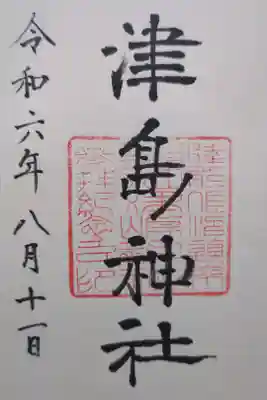 津島神社
令和六年八月十一日